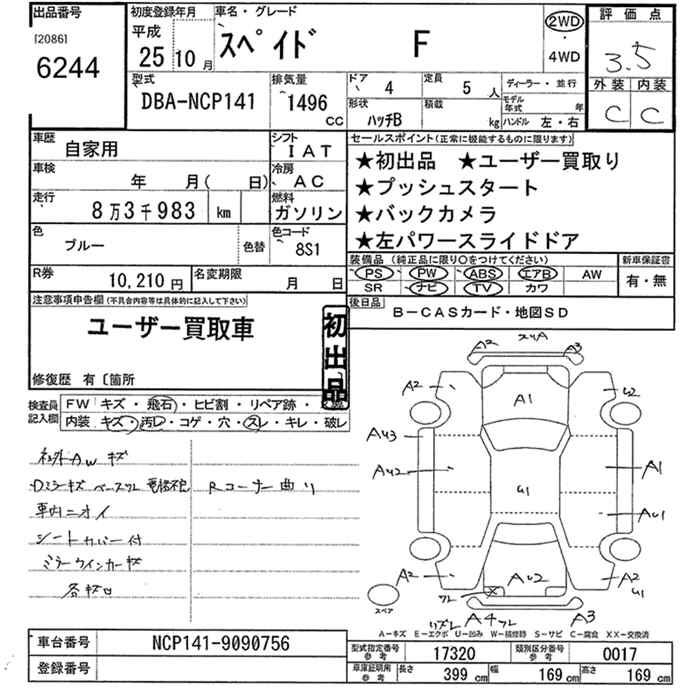 出品番号
[2086]
6244
初度登録年月
平成
25年10月
車名・グレード
スペイド F
2WD
・
4WD
評価点
3.5
外装 内装
C C
型式
DBA-NCP141
排気量
1496
CC
ドア
4
定員
5 人
形状
ハッチB
積載
kg
ディーラー・並行
モデル年式 年
ハンドル 左・右
車歴
自家用
シフト
IAT
車検
年 月( 日)
冷房
AC
走行
8万3千983 km
燃料
ガソリン
色
ブルー
色替
色コード
8S1
R券
10,210円
名変期限
月 日
セールスポイント(正常に機能するものに限ります)
★初出品 ★ユーザー買取り
★プッシュスタート
★バックカメラ
★左パワースライドドア
装備品 (純正品に限り○をつけてください)
PS PW ABS エアB AW
SR ナビ TV カワ
新車保証書
有・無
後日品
B-CASカード・地図SD
注意事項申告欄(不具合内容等は具体的に記入して下さい)
ユーザー買取車
初出品
修復歴 有〔箇所
検査員
記入欄
FW キズ・飛石・ヒビ割・リペア跡・
内装 キズ・汚レ・コゲ・穴・スレ・キレ・破レ
車内ニオイ
シートカバー付
ミラーウインカー
Rコーナー曲り
A2
A3
A2
A1
U2
AU3
AU2
A1
U1
AU1
A2
AU2
A2
U1
A4
A3
スペア
A-キズ E-エクボ U-凹み W-補修跡 S-サビ C-腐食 XX-交換済
車台番号
NCP141-9090756
登録番号
型式指定番号
参考
17320
類別区分番号
参考
0017
車庫証明用
参考
長さ 399 cm
幅 169 cm
高さ 169 cm